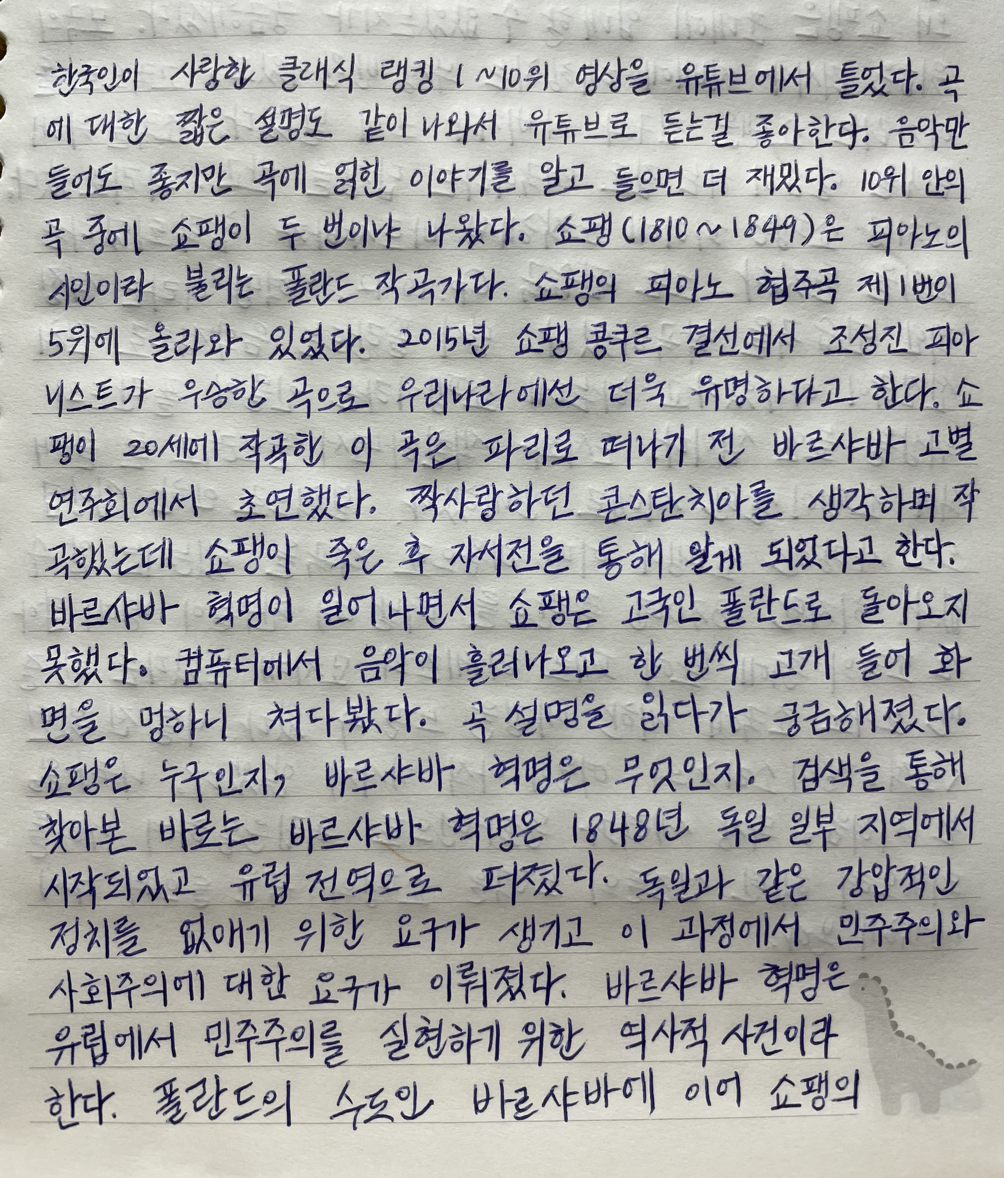 한국인이 사랑한 클래식 랭킹 1~10위 영상을 유튜브에서 틀었다. 곡
에 대한 짧은 설명도 같이 나와서 유튜브로 듣는걸 좋아한다. 음악만
들어도 좋지만 곡에 얽힌 이야기를 알고 들으면 더 재밌다. 10위 안의
곡 중에 쇼팽이 두 번이나 나왔다. 쇼팽(1810~1849)은 피아노의
시인이라 불리는 폴란드 작곡가다. 쇼팽의 피아노 협주곡 제1번이
5위에 올라와 있었다. 2015년 쇼팽 콩쿠르 결선에서 조성진 피아
니스트가 우승한 곡으로 우리나라에선 더욱 유명하다고 한다. 쇼
팽이 20세에 작곡한 이 곡은 파리로 떠나기 전 바르샤바 고별
연주회에서 초연했다. 짝사랑하던 콘스탄치아를 생각하며 작
곡했는데 쇼팽이 죽은 후 자서전을 통해 알게 되었다고 한다.
바르샤바 혁명이 일어나면서 쇼팽은 고국인 폴란드로 돌아오지
못했다. 컴퓨터에서 음악이 흘러나오고 한 번씩 고개 들어 화
면을 멍하니 쳐다봤다. 곡 설명을 읽다가 궁금해졌다.
쇼팽은 누구인지, 바르샤바 혁명은 무엇인지. 검색을 통해
찾아본 바로는 바르샤바 혁명은 1848년 독일 일부 지역에서
시작되었고 유럽 전역으로 퍼졌다. 독일과 같은 강압적인
정치를 없애기 위한 요구가 생기고 이 과정에서 민주주의와
사회주의에 대한 요구가 이뤄졌다. 바르샤바 혁명은
유럽에서 민주주의를 실현하기 위한 역사적 사건이라
한다. 폴란드의 수도인 바르샤바에 이어 쇼팽의